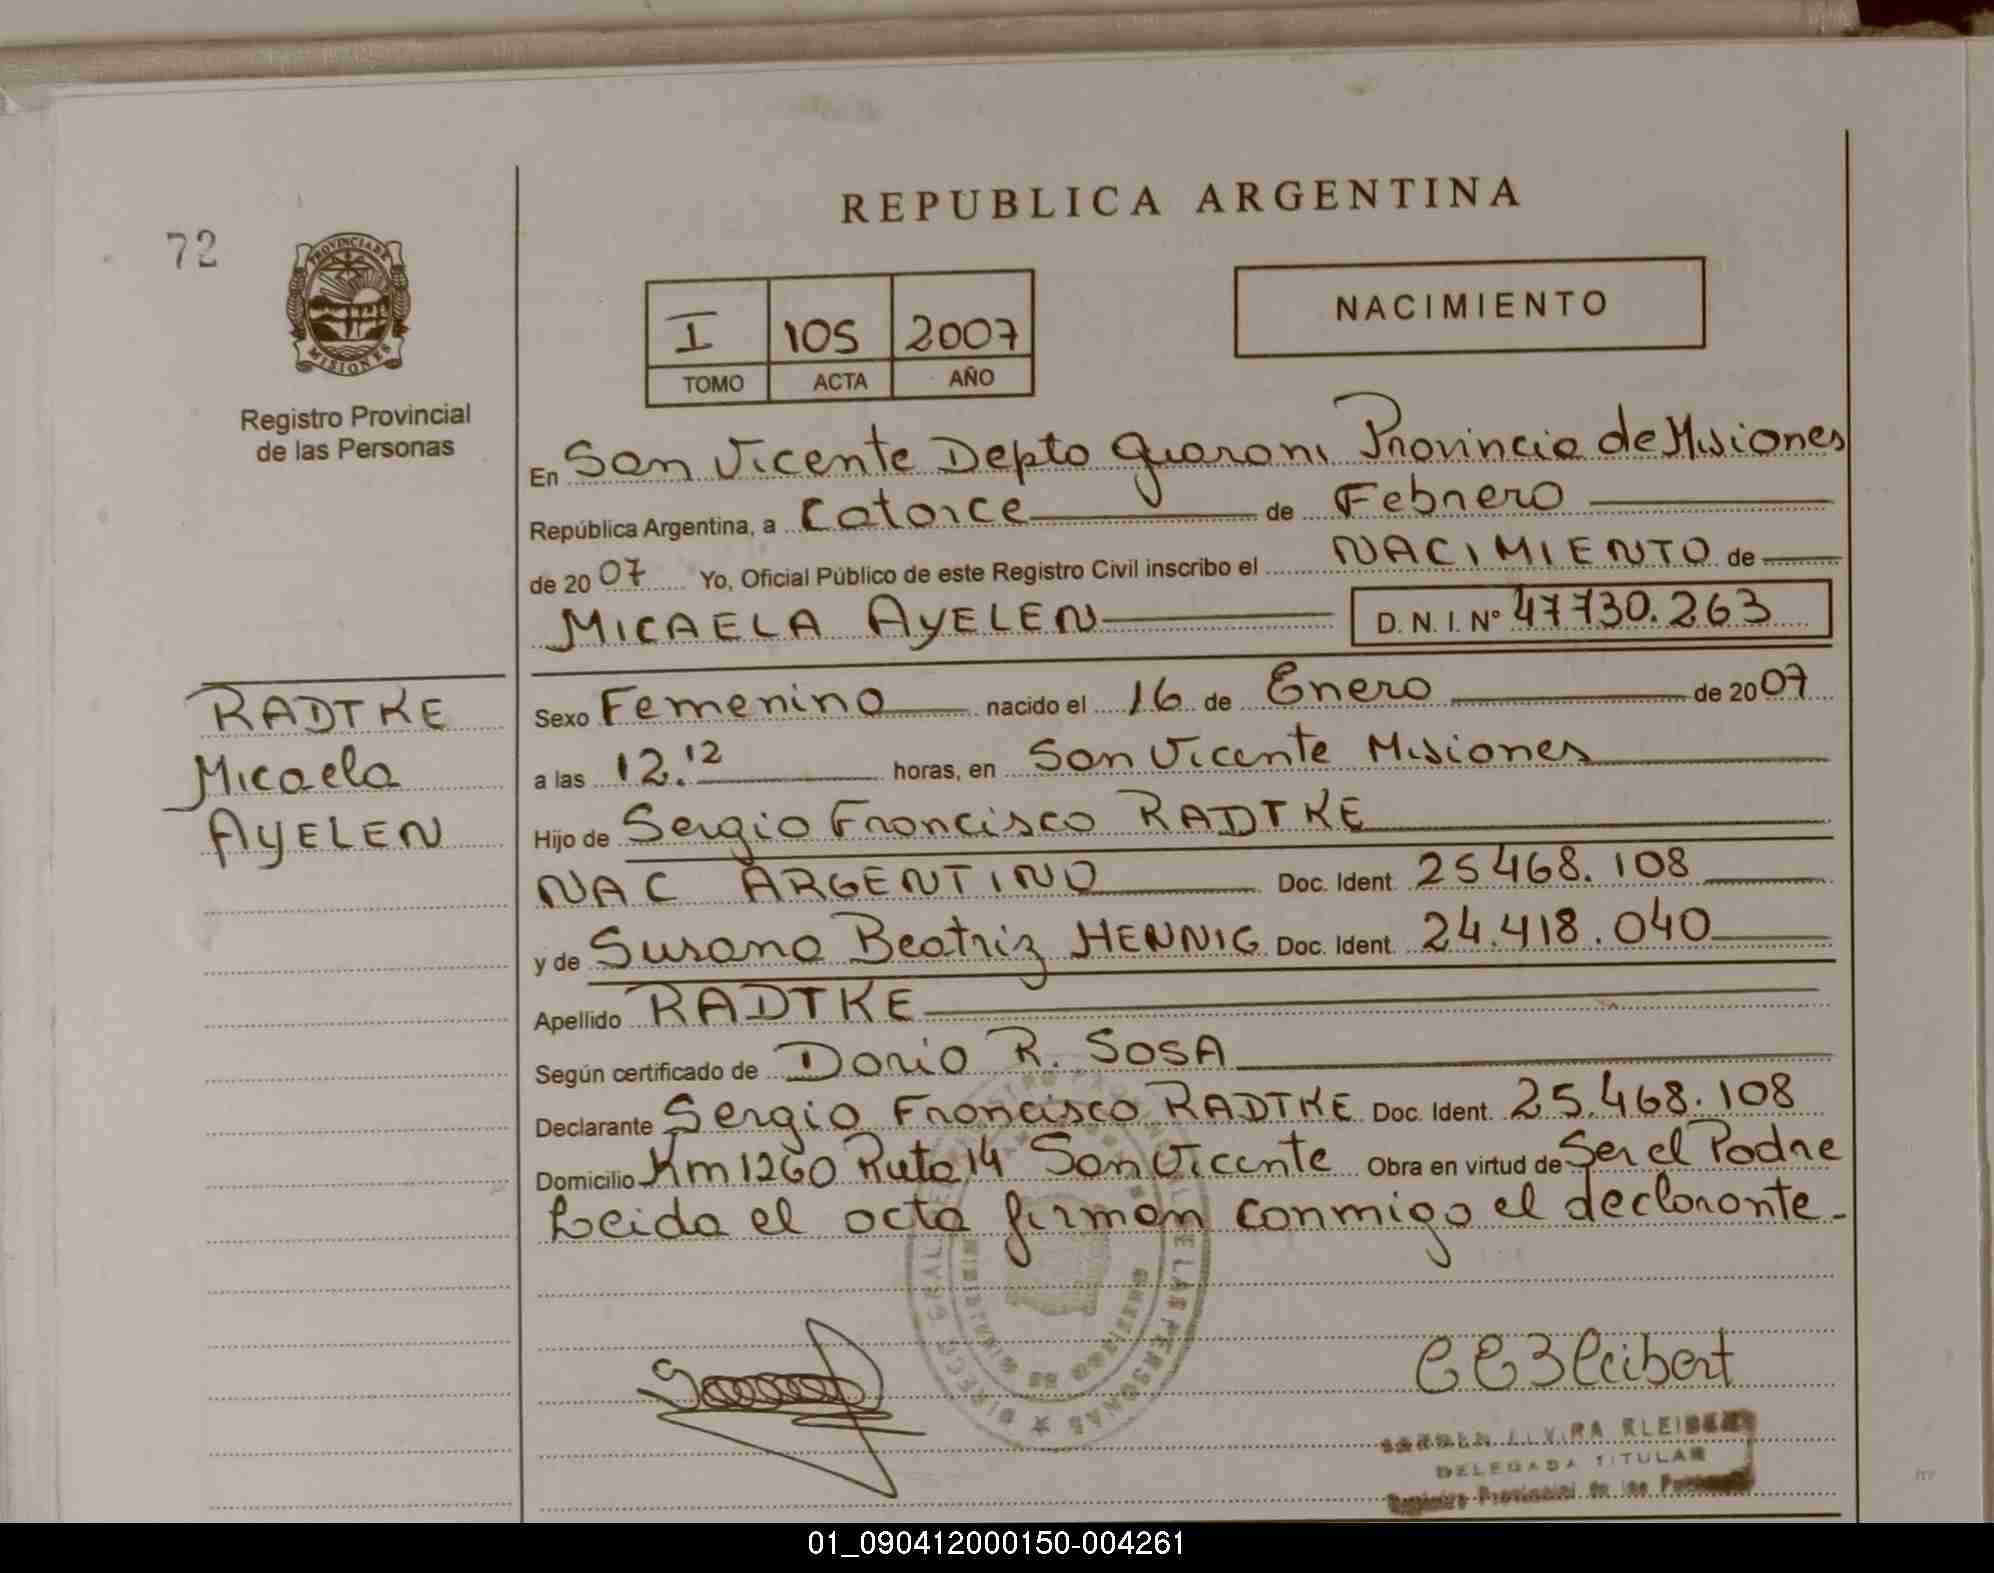 REPUBLICA ARGENTINA
72
PROVINCIA DE
MISIONES
Registro Provincial
de las Personas
I 105 2007
TOMO ACTA AÑO
NACIMIENTO
En San Vicente Depto Guarani Provincia de Misiones
República Argentina, a Catorce de Febrero
de 2007 Yo, Oficial Público de este Registro Civil inscribo el NACIMIENTO de
MICAELA AYELEN D.N.I. Nº 47730.263
RADTKE
Micaela
AYELEN
Sexo Femenino nacido el 16 de Enero de 2007
a las 12.12 horas, en San Vicente Misiones
Hijo de Sergio Francisco RADTKE
NAC ARGENTINO Doc. Ident. 25468.108
y de Susana Beatriz HENNIG Doc. Ident. 24.418.040
Apellido RADTKE
Según certificado de Dario R. SOSA
Declarante Sergio Francisco RADTKE Doc. Ident. 25.468.108
Domicilio Km 1260 Ruta 14 San Vicente Obra en virtud de Ser el Padre
Leida el acta firman conmigo el declarante.-
ELVIRA KLEIBERT
DELEGADA TITULAR
Registro Provincial de las Personas
01_090412000150-004261